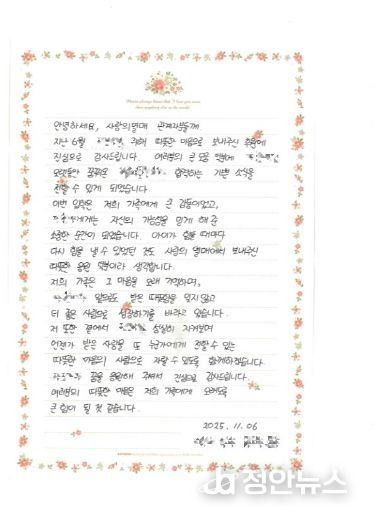 안녕하세요, 사랑의열매 관계자분들께.
지난 6월 위해 따뜻한 마음으로 보내주신 후원에
진심으로 감사드립니다. 여러분의 큰 도움 덕분에
오랫동안 꿈꿔온 합격하는 기쁜 소식을
전할 수 있게 되었습니다.
이번 입학은 저희 가족에게 큰 감동이었고,
에게는 자신의 가능성을 믿게 해 준
소중한 순간이 되었습니다. 아이가 힘들 때마다
다시 힘을 낼 수 있었던 것도 사랑의 열매에서 보내주신
따뜻한 응원 덕분이라 생각합니다.
저희 가족은 그 마음을 오래 기억하며,
앞으로도 받은 따뜻함을 잊지 않고
더 좋은 사람으로 성장하기를 바라고 있습니다.
저 또한 곁에서 성실히 지켜보며
언젠가 받은 사랑을 또 누군가에게 전할 수 있는
따뜻한 마음의 사람으로 자랄 수 있도록 함께하겠습니다.
꿈을 응원해 주셔서 진심으로 감사드립니다.
여러분의 따뜻한 마음은 저희 가족에게 오래도록
큰 힘이 될 것 같습니다.
2025. 11. 06
정안뉴스